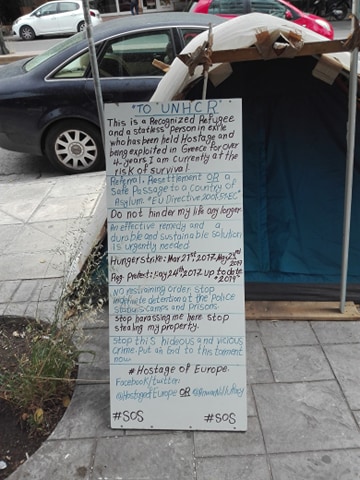 "TO "UNHCR"
This is a Recognized Refugee
and a statless Person in exile
who has been held Hostage and
being exploited in Greece for over
4-years I am currently at the
risk of survival.
Referral, Resettlement OR a
Safe Passage to a country of
Asylum. "EU Directive
Do not hinder my life any longer
An effective remedy and a
durable and sustainable solution
is urgently needed
Hunger strike: Mar 21st 2017, May 23rd
2017
Peg. Protest: May 24th 2017 up to date
"2019"
NO restraining order, stop
indefinite detention at the Police
stations, camps and Prisons.
Stop harassing me here stop
stealing my property.
Stop this hideous and vicious
crime. Put an End to this torment
now
# Hostage of Europe.
Facebook/twitter:
@HostagedEurope OR
#SOS #SOS